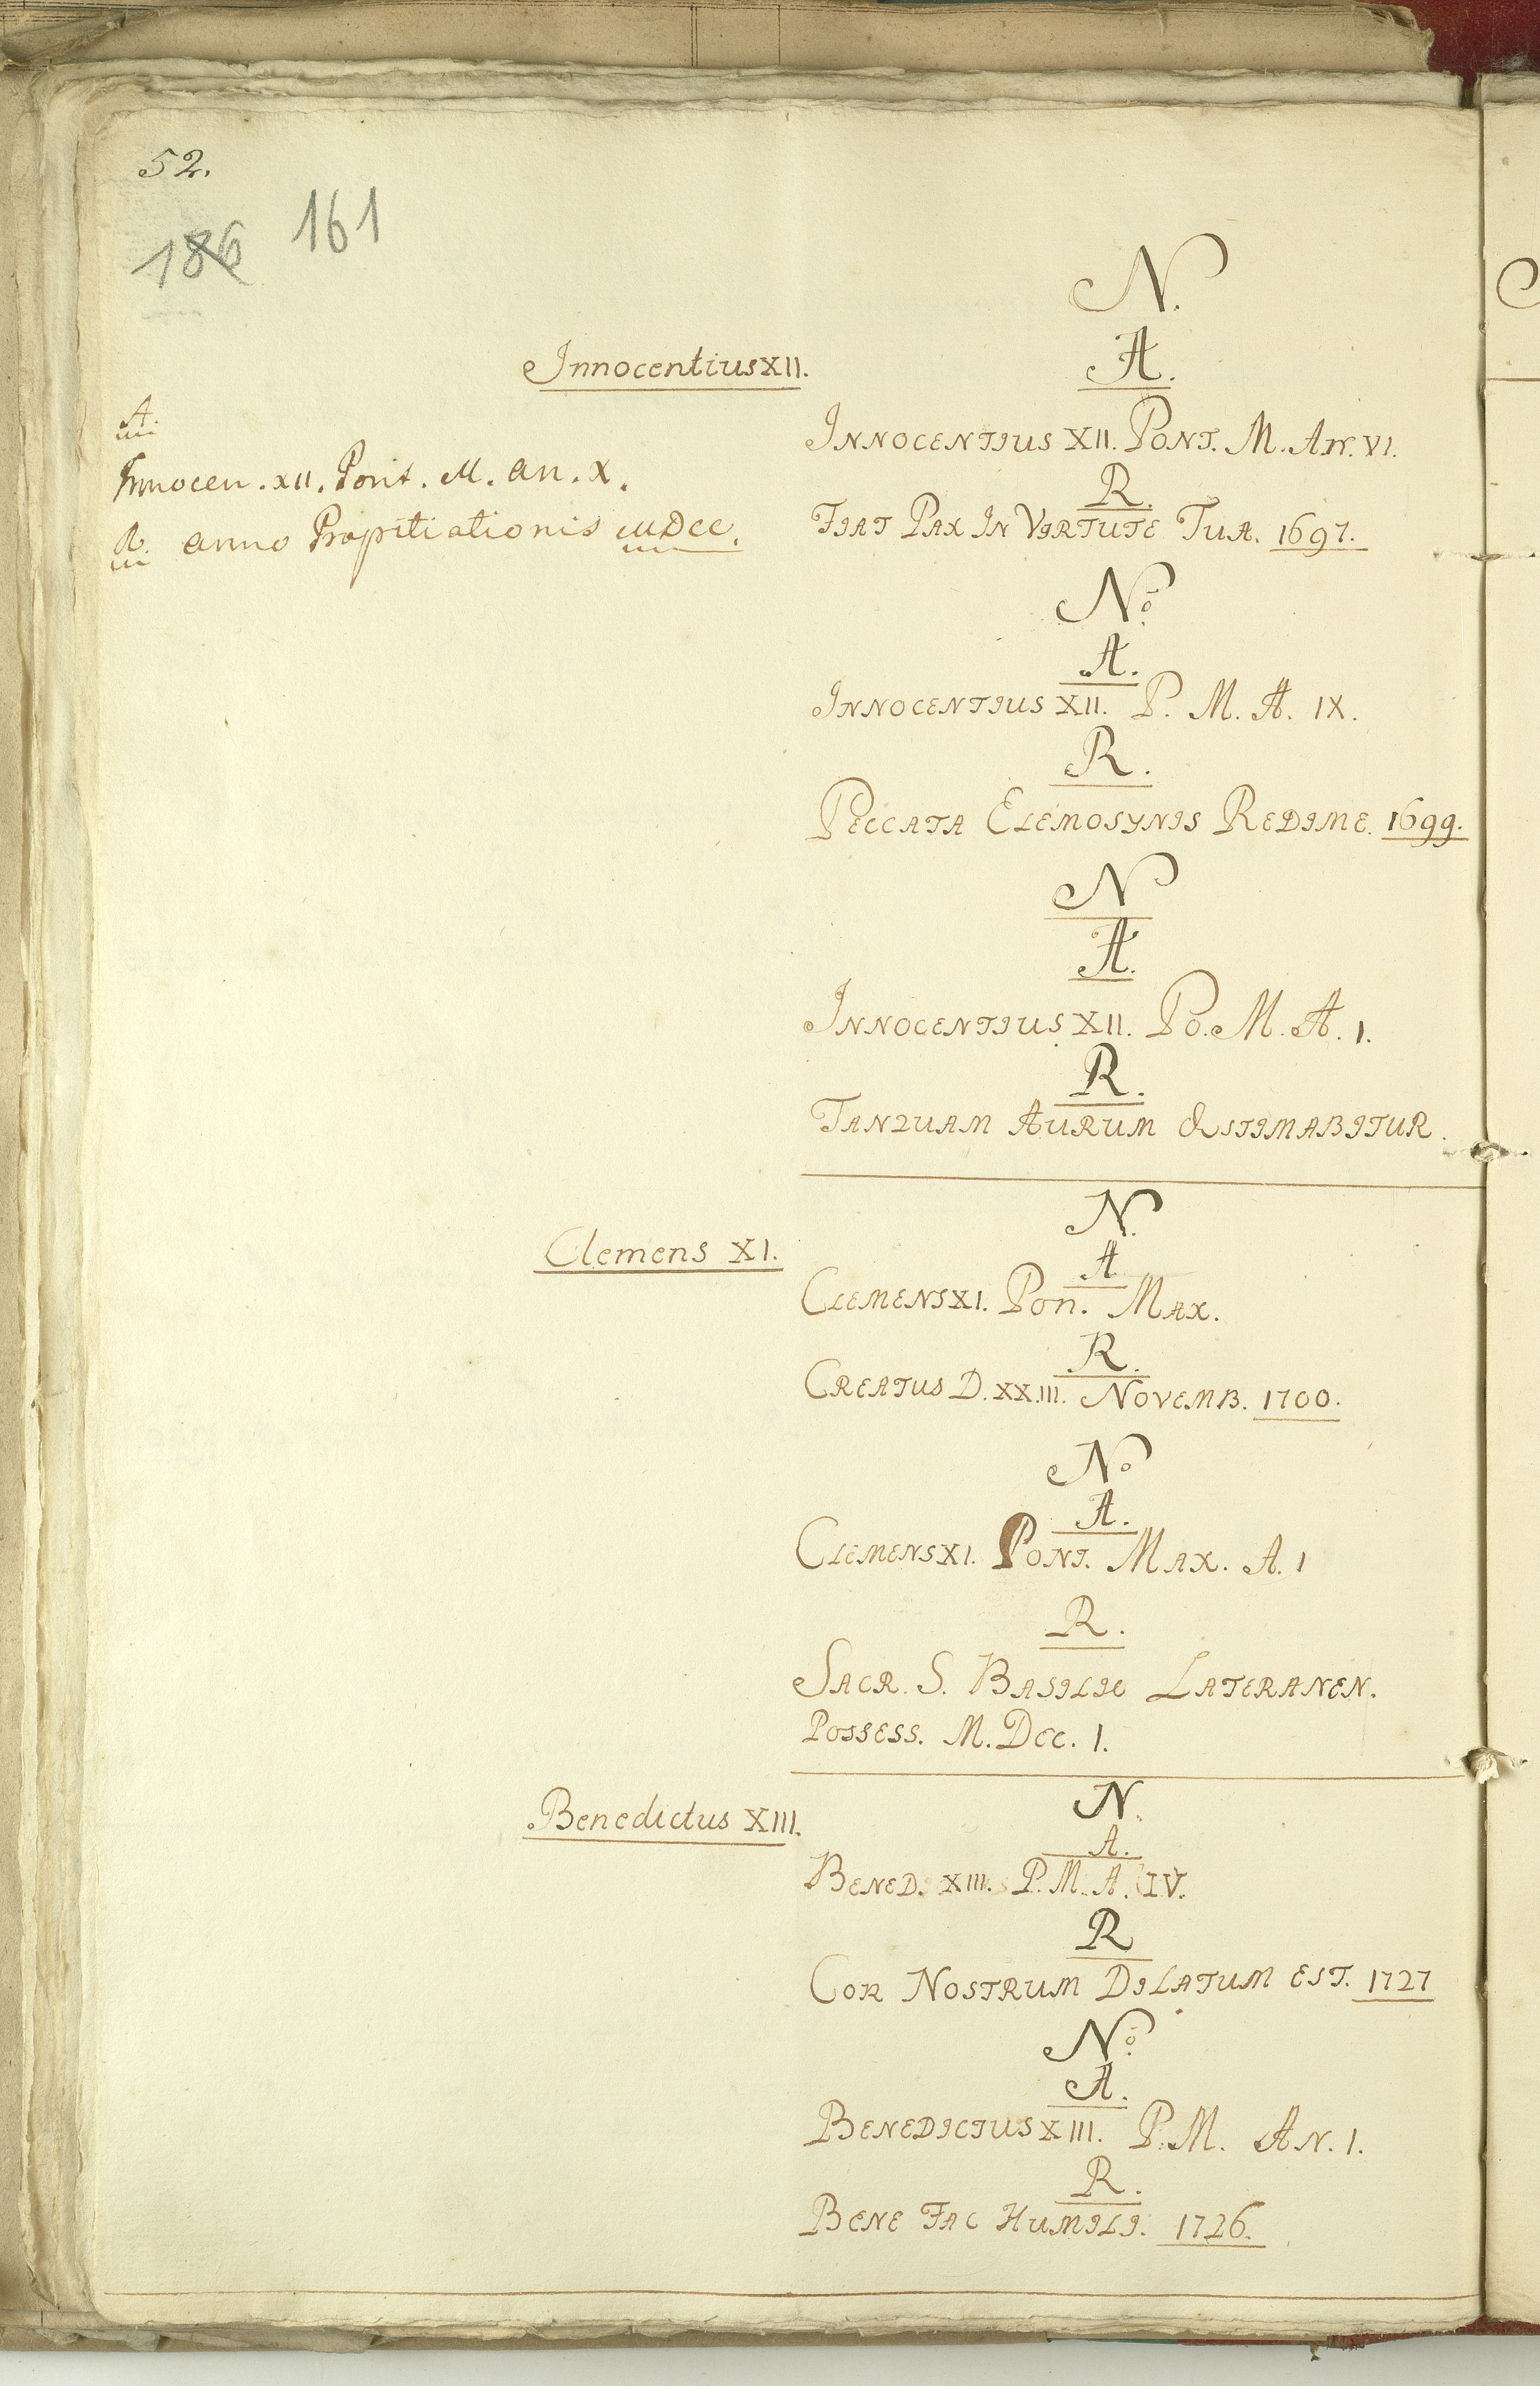 52.
186 161
N.
A.
Innocentius XII.
INNOCENTIUS XII. PONT. M. AN. VI.
R.
FIAT PAX IN VIRTUTE TUA. 1697.
A.
Innocen. XII. Pont. M. an. X.
R. anno Propitiationis MDCC.
No.
A.
INNOCENTIUS XII. P. M. A. IX.
R.
PECCATA ELEMOSYNIS REDIME. 1699.
N
A.
INNOCENTIUS XII. PO. M. A. I.
R.
TANQUAM AURUM ÆSTIMABITUR.
N.
Clemens XI.
A
CLEMENS XI. PON. MAX.
R.
CREATUS D. XX.III. NOVEMB. 1700.
No
A.
CLEMENS XI. PONT. MAX. A. I
R.
SACR. S. BASILIC LATERANEN.
POSSESS. M. DCC. I.
N.
Benedictus XIII.
A.
BENED. XIII. P. M. A. IV.
R
COR NOSTRUM DILATUM EST. 1727
No.
A.
BENEDICTUS XIII. P. M. AN. I.
R.
BENE FAC HUMILI. 1726.